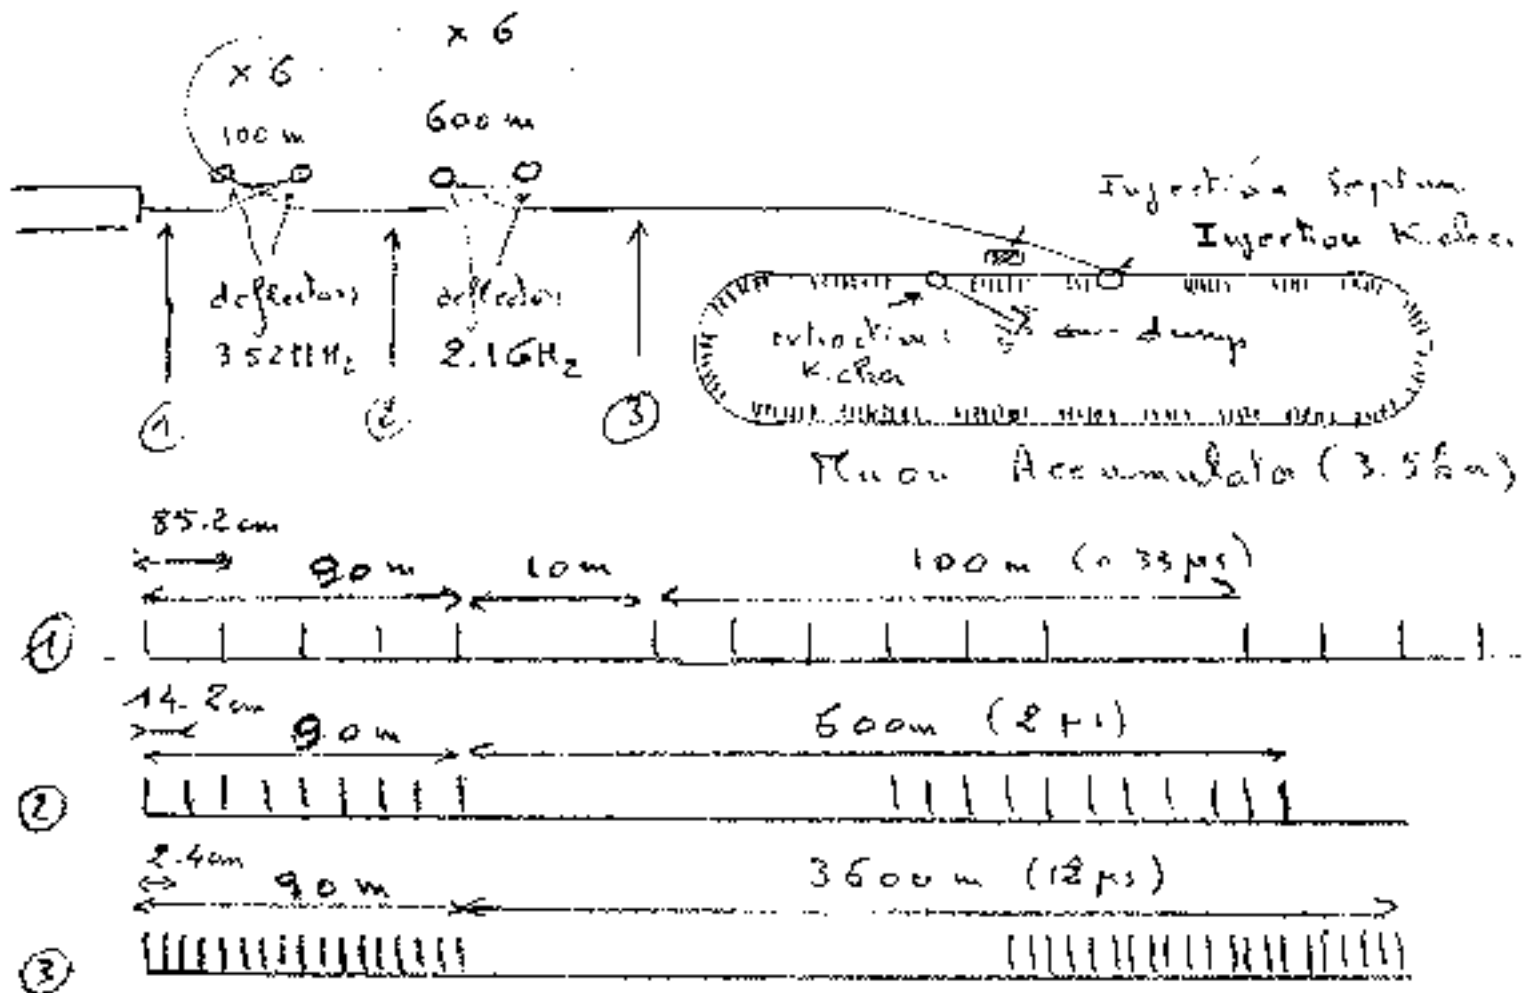 × 6
× 6
100 m
600 m
Injection Septum
Injection Kicker
deflectors
352MHz
deflectors
2.1GHz
extraction
Kicker
dump
1
2
3
Muon Accumulator (3.5km)
85.2 cm
90 m
10 m
100 m
1
14.2 cm
90 m
600m (2 μs)
2
2.4cm
90 m
3600 m (12 μs)
3